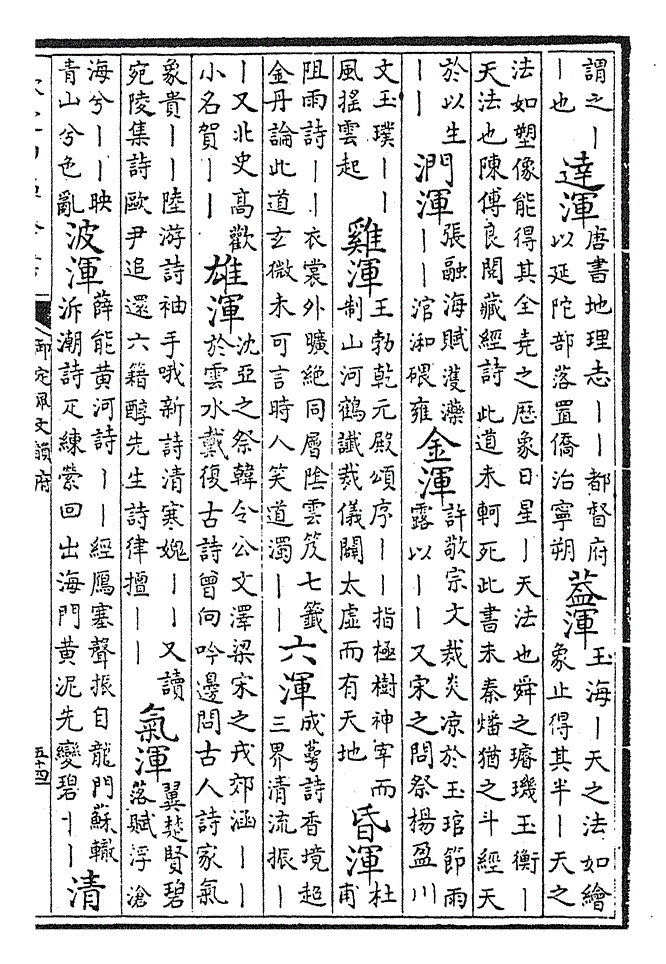 謂之丨丨也達渾唐書地理志丨丨都督府以延陀部落置僑治寧朔葢渾玉海丨天之法如繪象止得其半丨天之
法如塑像能得其全堯之歷象日星丨天法也舜之璿璣玉衡丨天法也陳傅良閱藏經詩此道未軻死此書未秦燔猶之斗經天
於以生丨丨渾張融海賦濩藻丨丨涫㴒碨雍金渾許敬宗文裁炎凉於玉琯節雨露以丨丨又宋之問祭楊盈川
文玉璞丨丨風搖雲起雞渾王勃乾元殿頌序丨丨指極樹神宰而制山河鶴讖裁儀闢太虛而有天地昏渾杜甫
阻雨詩丨丨衣裳外曠絕同層陰雲笈七籤金丹論此道玄微未可言時人笑道濁丨丨六渾成蕚詩香境超三界清流振丨
丨又北史高歡小名賀丨丨雄渾沈亞之祭韓令公文澤梁宋之戎郊涵丨丨於雲水戴復古詩曾向吟邊問古人詩家氣
象貴丨丨陸游詩袖手哦新詩清寒媿丨丨又讀宛陵集詩歐尹追還六籍醇先生詩律擅丨丨氣渾翼楚賢碧落賦浮滄
海兮丨丨映青山兮色亂波渾薛能黃河詩丨丨經鴈塞聲振自龍門蘇轍泝潮詩疋練縈回出海門黃泥先變碧丨丨清
御定佩文韻府
五十四